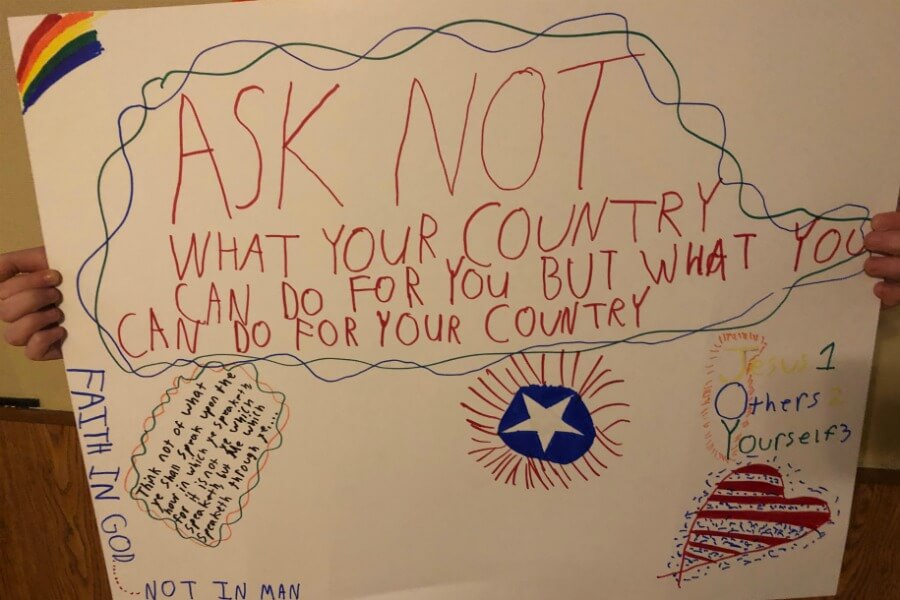 ASK NOT
WHAT YOUR COUNTRY
CAN DO FOR YOU BUT WHAT YOU
CAN DO FOR YOUR COUNTRY
Think not of what
ye shall speak upon the
hour in which ye speaketh,
for it is not ye which
speaketh, but He which
speaketh through ye...
FAITH IN GOD......
NOT IN MAN
Jesus 1
Others 2
Yourself 3